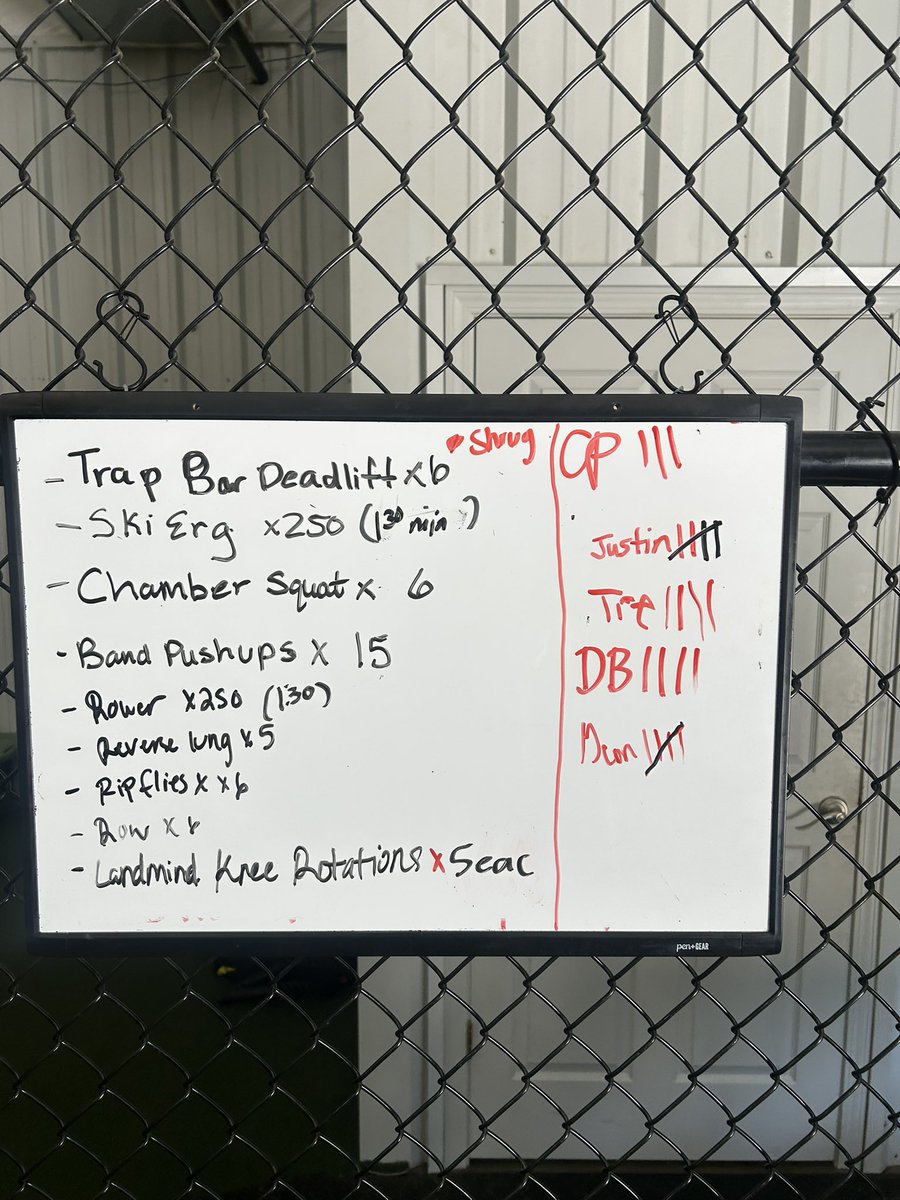 - Trap Bar Deadlift x6 • Shrug
- Ski Erg x250 (1³⁰ min )
- Chamber Squat x 6
- Band Pushups x 15
- Rower x250 (1:30)
- Reverse lung x5
- Ripflies x x6
- Row x
- Landmind Knee Rotations x 5eac
CP |||
Justin
Tre ||||
DB ||||
pen+GEAR